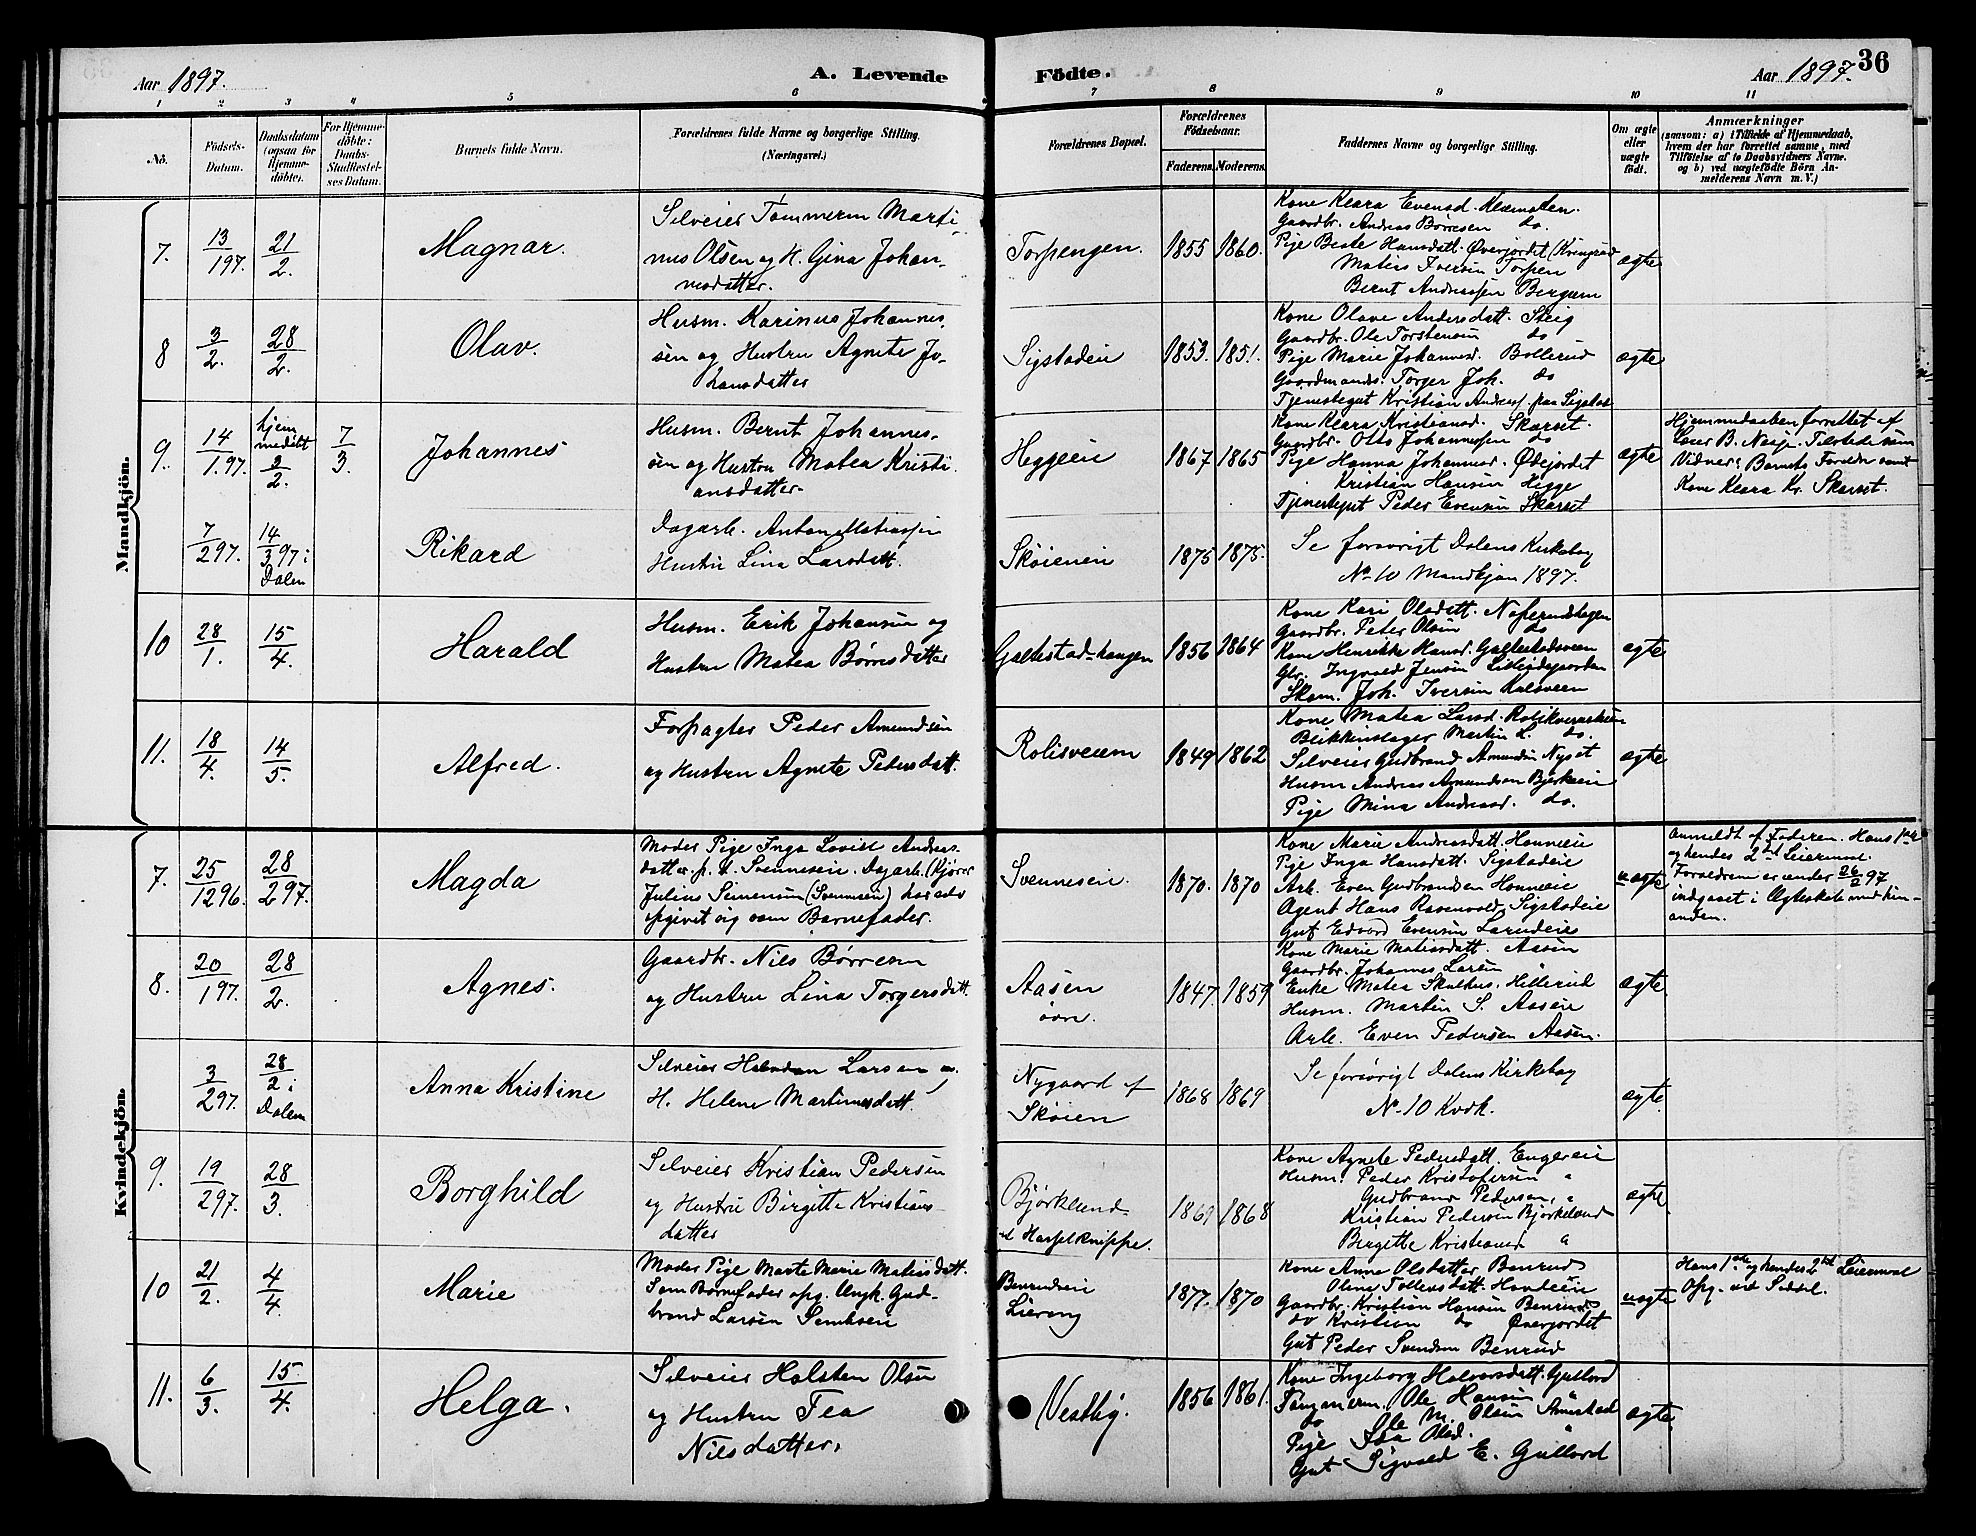 36
Aar 1897.
A. Levende
Födte.
Aar 1897.
1 2 3 4 5 6 7 8 9 10 11
No.
Födsels-
Datum.
Daabsdatum
(ogsaa for
Hjemme-
döbte).
For Hjemme-
döbte:
Daabs-
Stadfæstel-
ses Datum.
Barnets fulde Navn.
Forældrenes fulde Navne og borgerlige Stilling.
(Næringsvei.)
Forældrenes Bopæl.
Forældrenes
Födselsaar.
Faderens. Moderens.
Faddernes Navne og borgerlige Stilling.
Om ægte
eller
uægte
födt.
Anmærkninger
(saasom: a) i Tilfælde af Hjemmedaab,
hvem der har forrettet samme, med
Tilföielse af to Daabsvidners Navne.
og b) ved uægtefödte Börn An-
melderens Navn m. V.)
Mandkjön.
7. 13/1 97. 21/2. Magnar.
Selveier Tømmerm Marti-
nus Olsen og H. Gina Johan-
nesdatter.
Torpengen. 1855 1860.
Kone Klara Evensd. Klæmoten.
Gaardbr. Andreas Børresen do.
Pige Beate Hansdatt. Øverjordet
Matias Iversen Torpen
Bernt Andreassen Bergum
ægte
8 3/2. 28/2. Olav.
Husm. Karinus Johannes-
sen og Hustru Agnete Jo-
hansdatter
Sigstadeie 1853. 1851.
Kone Olave Andersdatt. Steig
Gaardbr. Ole Torstensen do
Pige Marie Johannesd. Bollerud
Gaardmands. Torger Joh. do
Tjenestegut Kristian Andersf. paa Sigstad
ægte
9. 14/1.97. hjem
medöbt
3/2. 7/3. Johannes
Husm. Bernt Johannes-
sen og Hustru Matea Kristi-
ansdatter.
Heggeeie 1867 1865
Kone Klara Kristiansd. Skarset.
Gaardbr. Otto Johannessen do
Pige Hanna Johannesd. Ødejordet
Kristian Hansen Hegge
Tjenestegut Peder Evensen Skarset
ægte
Hjemmedaaben forrettet af
Lærer B. Naaje. Tilstede som
Vidner: Barnets Forældre samt
Kone Klara Kr. Skarset.
7/2 97. 14/3 97 i
Dalen Rikard
Dagarb. Anton Matiassen
Hustru Lina Larsdatt.
Skøieneie 1875 1875.
Se forøvrigt Dalens Kirkebog
No 10 Mandkjøn 1897.
10 28/1. 15/4. Harald
Husm. Erik Johansen og
Hustru Matea Børresdatter
Galtestad-haugen 1856 1864
Kone Kari Olsdatt. Næperudshagen
Gaardbr. Peter Olsen do
Kone Henrikke Hansd. Galtestadsveen
Gbr. Ingvald Jensen
Skom. Joh. Iversen Kalsveen
ægte
11. 18/4. 14/5. Alfred.
Forpagter Peder Amundsen
og Hustru Agnete Pedersdatt.
Rolisveiem 1849 1862
Kone Matea Larsd.
Blikkenslager Martin L. do.
Selveier Gudbrand Amundsen Nyset
Husm Andreas Amundsen Bjerkeeie
Pige Mina Andreasd. do.
ægte
Kvindekjön.
7. 25/12 96. 28/2 97. Magda
Moder Pige Inga Lovise Anders-
datter p. t. Svenneseie. Dagarb. (Kjører)
Julius Simensen (Svenneseie) har selv
opgivet sig som Barnefader.
Svenneseie. 1870. 1870
Kone Marie Andreasdatt. Honneeie
Pige Inga Hansdatt. Sigstadeie
Arb. Even Gudbrandsen Honneeie
Agent Hans Ravenvold Sigstadeie
Gut Edvard Evensen Larudeie
uægte
Anmeldt af Faderen. Hans 1ste
og hendes 2det Leiermaal.
Forældrene er under 26/2 97
indgaaet i Ægteskab med hin-
anden.
8. 20/1 97. 28/2. Agnes.
Gaardbr. Nils Børresen
og Hustru Lina Torgersdatt.
Aasen
övre. 1847. 1859
Kone Marie Matiasdatt. Aasen
Gaardbr. Johannes Larsen "
Enke Matea Skulhus, Hillerud
Husm. Martin S. Aaseie
Arb. Even Pedersen Aasen.
ægte.
3/2 97. 28/2 i
Dalen Anna Kristine
Selveier Halvdan Larsen o.
H. Helene Martinusdatt.
Nygaard af
Skøien 1868 1869
Se forøvrigt Dalens Kirkebog
No 10 Kvdk.
ægte.
9. 19/2 97. 28/3. Borghild
Selveier Kristian Pedersen
og Hustru Birgitte Kristians-
datter
Bjørklund
1869 1868
Kone Agnete Pedersdatt. Engereie
Husm. Peder Kristofersen "
Gudbrand Pedersen "
Kristian Pedersen Bjørkelund
Birgitte Kristiansd. "
ægte.
10 21/2. 4/4. Marie
Moder Pige Marte Marie Matiasdatt.
Som Barnefader opg. Ungk. Gud-
brand Larsen Sembseie
Benrudeie
1877. 1870
Kone Anne Olsdatter Benrud
Oline Tollevsdatt. Hondeeie
Gaardbr. Kristian Hansen Benrud
do Kristian do Øverjordet
Gut Peder Svendsen Benrud
uægte
Hans 1ste og hendes 2det Leiermaal
Opg. ved Seddel.
11. 6/3. 15/4. Helga.
Selveier Halsten Olsen
og Hustru Tea
Nilsdatter.
Vestby. 1856 1861.
Kone Ingeborg Halvorsdatt. Gullord
Tømmerm. Ole Hansen "
do Ole M. Olsen Aunstad
Pige Tea Olsd. "
Gut Sigvald E. Gullord
ægte